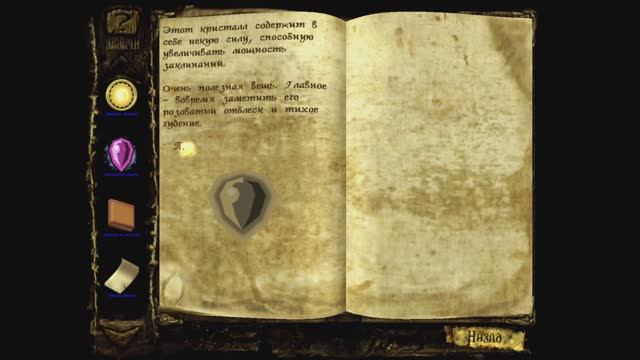 Этот кристалл содержит в
себе некую силу, способную
увеличивать мощность
заклинаний.
Очень полезная вещь. Главное
- вовремя заметить его
розоватый отблеск и тихое
гудение.
П.
Назад